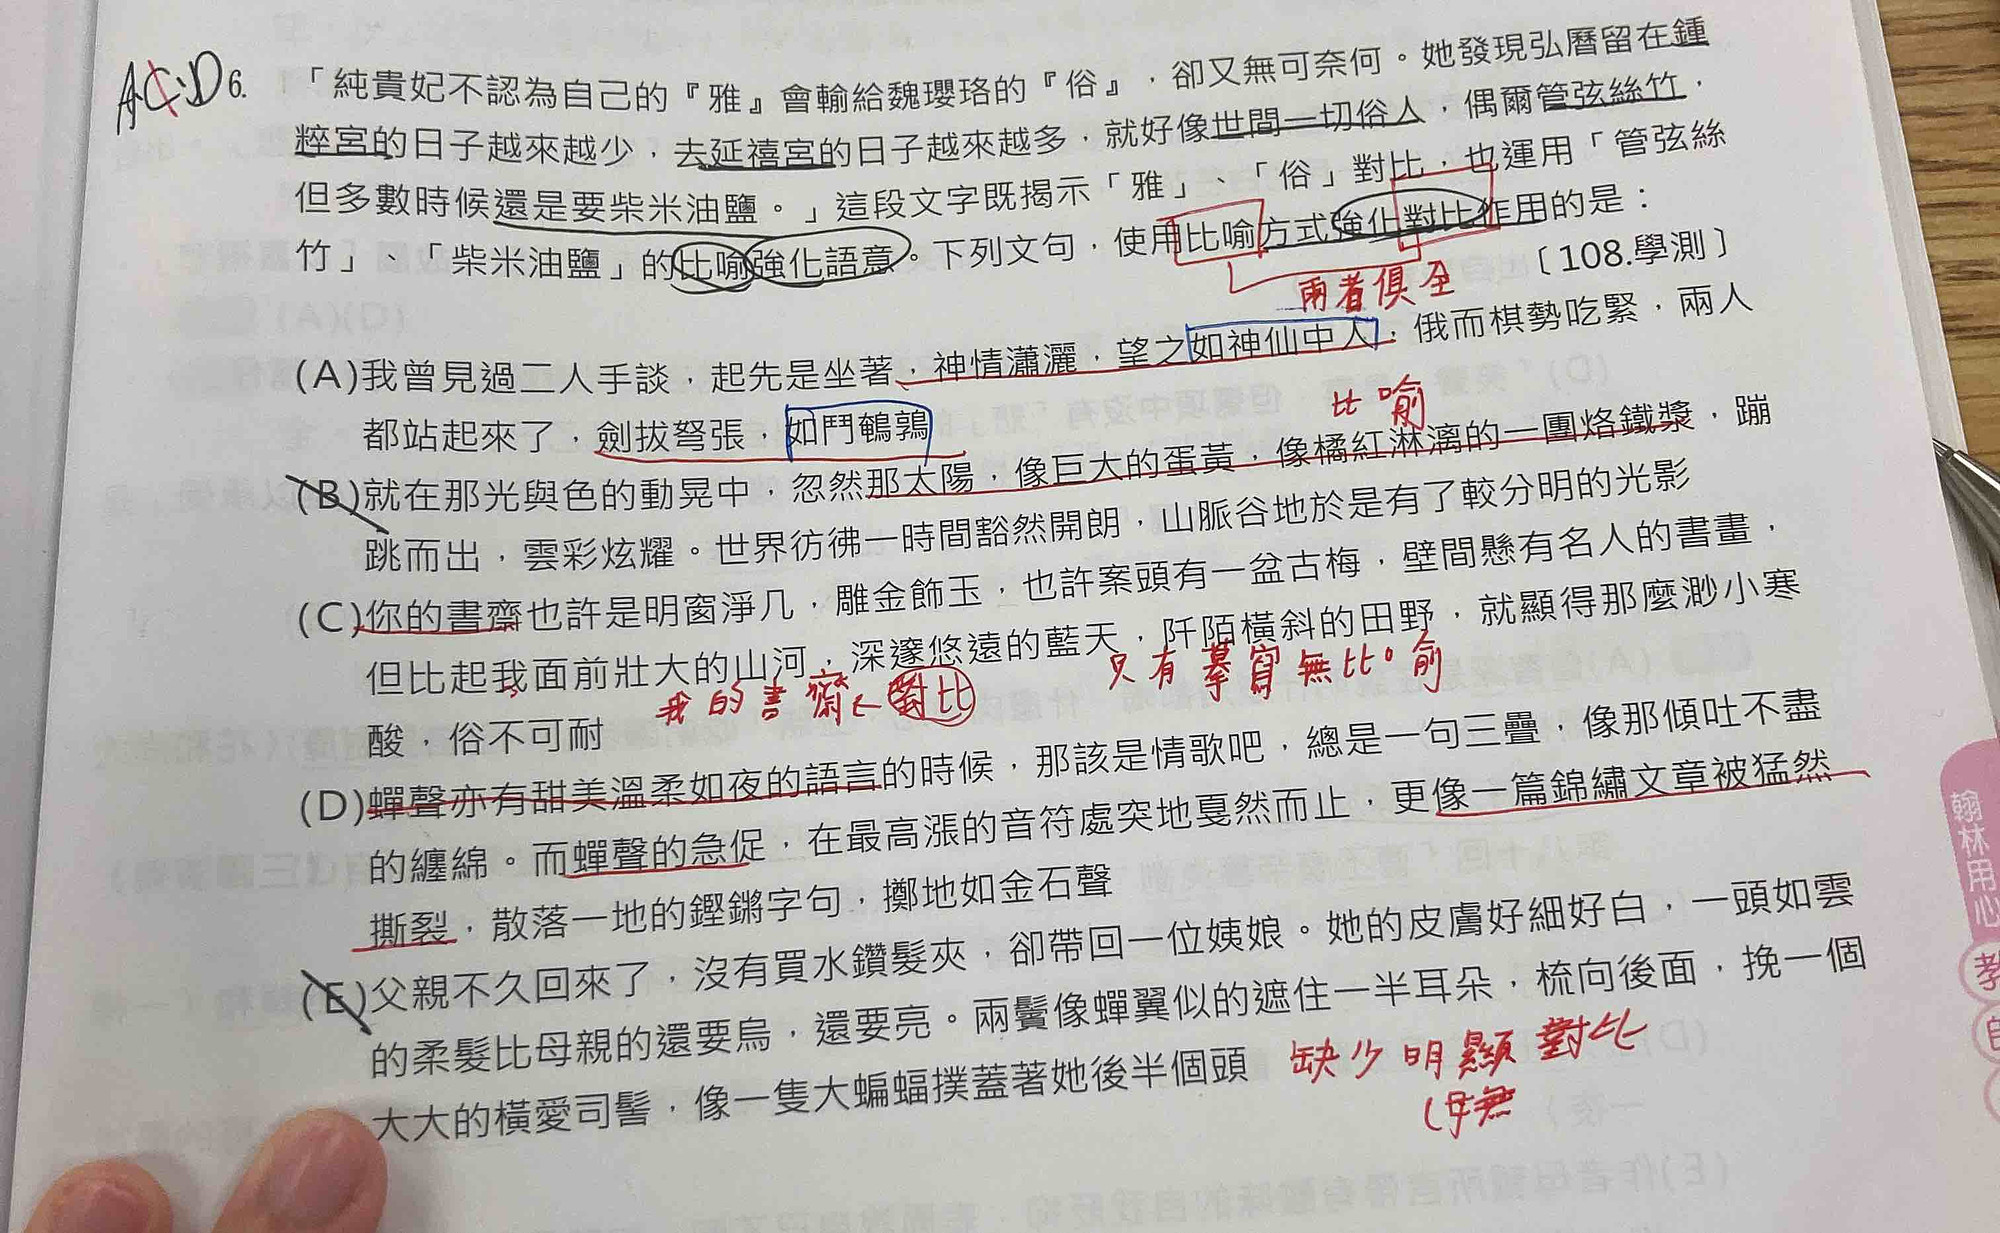 ACD 6.
「純貴妃不認為自己的『雅』會輸給魏瓔珞的『俗』，卻又無可奈何。她發現弘曆留在鍾
粹宮的日子越來越少，去延禧宮的日子越來越多，就好像世間一切俗人，偶爾管弦絲竹，
但多數時候還是要柴米油鹽。」這段文字既揭示「雅」、「俗」對比，也運用「管弦絲
竹」、「柴米油鹽」的比喻強化語意。下列文句，使用比喻方式強化對比作用的是：
〔108.學測〕
兩者俱全
(A)我曾見過二人手談，起先是坐著，神情瀟灑，望之如神仙中人，俄而棋勢吃緊，兩人
都站起來了，劍拔弩張，如鬥鵪鶉
比喻
(B)就在那光與色的動晃中，忽然那太陽，像巨大的蛋黃，像橘紅淋漓的一團烙鐵漿，蹦
跳而出，雲彩炫耀。世界彷彿一時間豁然開朗，山脈谷地於是有了較分明的光影
(C)你的書齋也許是明窗淨几，雕金飾玉，也許案頭有一盆古梅，壁間懸有名人的書畫，
但比起我面前壯大的山河，深邃悠遠的藍天，阡陌橫斜的田野，就顯得那麼渺小寒
我的書齋 對比
只有摹寫無比喻
酸，俗不可耐
(D)蟬聲亦有甜美溫柔如夜的語言的時候，那該是情歌吧，總是一句三疊，像那傾吐不盡
的纏綿。而蟬聲的急促，在最高漲的音符處突地戛然而止，更像一篇錦繡文章被猛然
撕裂，散落一地的鏗鏘字句，擲地如金石聲
(E)父親不久回來了，沒有買水鑽髮夾，卻帶回一位姨娘。她的皮膚好細好白，一頭如雲
的柔髮比母親的還要烏，還要亮。兩鬢像蟬翼似的遮住一半耳朵，梳向後面，挽一個
大大的橫愛司髻，像一隻大蝙蝠撲蓋著她後半個頭
缺少明顯對比
(母無
翰林用心
教